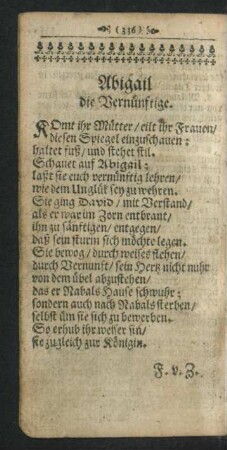 (336)
Abigail
die Vernünftige.
KOmt ihr Mütter/ eilt ihr Frauen/
diesen Spiegel einzuschauen:
haltet fuß/ und stehet stil.
Schauet auf Abigail:
laßt sie euch vernünftig lehren/
wie dem Unglük sey zu wehren.
Sie ging David/ mit Verstand/
als er war im Zorn entbrant/
ihn zu sänftigen/ entgegen/
daß sein sturm sich möchte legen.
Sie bewog/ durch weises flehen/
durch Vernunft/ sein Hertz nicht nuhr
von dem übel abzustehen/
das er Nabals Hause schwuhr:
sondern auch nach Nabals sterben/
selbst üm sie sich zu bewerben.
So erhub ihr weiser sin/
sie zugleich zur Königin.
F. v. Z.